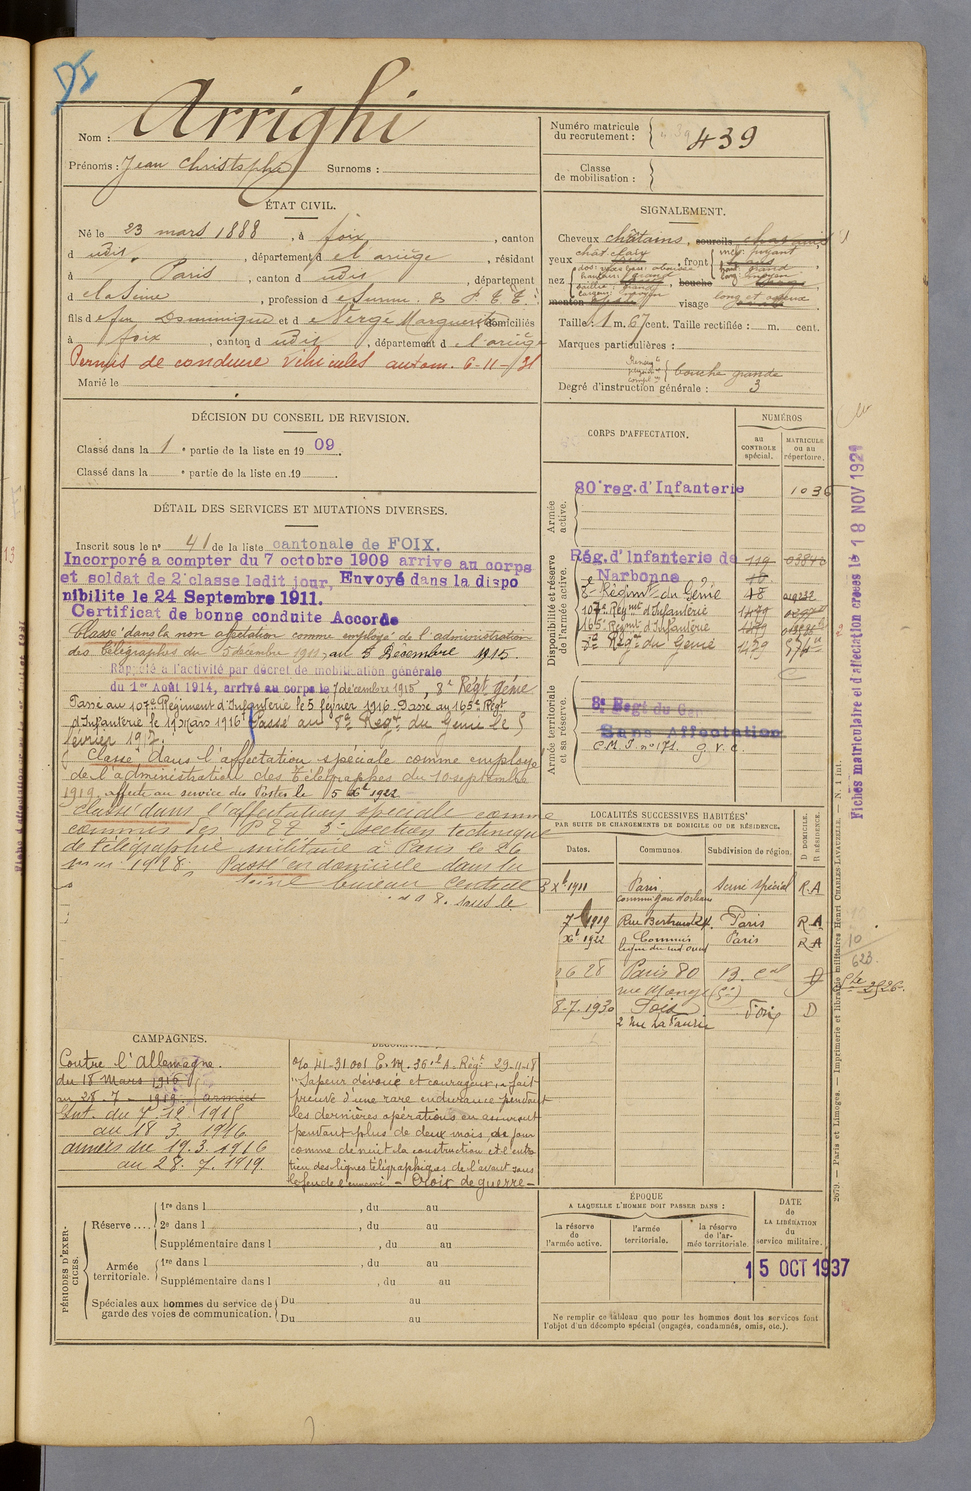 DI
Nom : Arrighi
Prénoms : Jean Christophe Surnoms :
Numéro matricule
du recrutement : 439
Classe
de mobilisation :
ÉTAT CIVIL.
Né le 23 mars 1888, à foix, canton
d udit, département d el ariège, résidant
à Paris, canton d udit, département
d e la Seine, profession d
fils d e feu Dominique et d e Vergé Marguerite domiciliés
à foix, canton d udit, département d e l'ariège
Permis de conduire Véhicules autom. 6-11-31
Marié le
SIGNALEMENT.
Cheveux châtains, sourcils
yeux chât clair, front
nez
menton visage long et
Taille : 1 m. 67 cent. Taille rectifiée : m. cent.
Marques particulières :
bouche grande
Degré d'instruction générale : 3
DÉCISION DU CONSEIL DE REVISION.
Classé dans la 1e partie de la liste en 1909.
Classé dans la e partie de la liste en 19
DÉTAIL DES SERVICES ET MUTATIONS DIVERSES.
Inscrit sous le no 41 de la liste cantonale de FOIX.
Incorporé a compter du 7 octobre 1909 arrive au corps
et soldat de 2e classe ledit jour, Envoyé dans la dispo
nibilite le 24 Septembre 1911.
Certificat de bonne conduite Accordé
Classé dans la non affectation comme employé de l'administration
des télégraphes du 5 décembre 1911 au 5 Décembre 1915.
Rappelé a l'activité par décret de mobilisation générale
du 1er Août 1914, arrivé au corps le 7 décembre 1915, 8e Régt génie
Passé au 107e Régiment d'Infanterie le 5 février 1916. Passé au 165e Régt
d'Infanterie le 19 Mars 1916. Passé au 8e Regt du Genie le 5
février 19
Classé dans l'affectation spéciale comme employé
de l'administration des Télégraphes du 10 septembre
1919, affecté au service des Postes le 15 Xbre 1922
Classé dans l'affectation spéciale comme
commis des PTT 3e section technique
de télégraphie militaire à Paris le 26
1928. Passé en domicile dans la
Seine bureau Central
8. sous le
CORPS D'AFFECTATION.
NUMÉROS
au
CONTROLE
spécial.
MATRICULE
ou au
répertoire.
Armée
active.
80e reg. d'Infanterie 1036
Disponibilité et réserve
de l'armée active.
Rég. d'Infanterie de
Narbonne
8e Régiment du Génie
107e Régmt d'Infanterie
165e Régmt d'Infanterie
Régt du Génie
Armée territoriale
et sa réserve.
8e Regt du Gen
Sans Affectation
C.M.I. no 171. G.V.C.
Fiches matriculaire et d'affectation créées le 18 NOV 1921
LOCALITÉS SUCCESSIVES HABITÉES
PAR SUITE DE CHANGEMENTS DE DOMICILE OU DE RÉSIDENCE.
Dates. Communes. Subdivision de région. D DOMICILE. R RÉSIDENCE.
Xbre 1911 Paris Seine spécial R.A
commis gare d'orléans
1919 Rue Bertrand Paris R A
Xbre 1922 Commis Paris R A
ligne du sud ouest
6 28 Paris 80 B. Cal D
rue Monge
8-7.1930 Foix Foix D
2 rue La Faurie
10
623
CAMPAGNES.
Contre l'Allemagne.
du 18 Mars 1916
au 28-7-1919 armées
Int. du 7 12 1915
au 18 3. 1916
armées du 19.3.1916
au 28.7.1919
o/o 41-31.001 29-11-18
"Sapeur dévoué et courageux, a fait
preuve d'une rare endurance pendant
les dernières opérations en assurant
pendant plus de deux mois, de jour
comme de nuit la construction et l'entre
tien des lignes télégraphiques de l'avant sous
le feu de l'ennemi - Croix de guerre -
PÉRIODES D'EXERCICES.
Réserve ....
1re dans l , du au
2e dans l , du au
Supplémentaire dans l , du au
Armée
territoriale.
1re dans l , du au
Supplémentaire dans l , du au
Spéciales aux hommes du service de
garde des voies de communication.
Du au
Du au
ÉPOQUE
A LAQUELLE L'HOMME DOIT PASSER DANS :
la réserve
de
l'armée active.
l'armée
territoriale.
la réserve
de l'ar-
mée territoriale.
DATE
de
LA LIBÉRATION
du
service militaire.
15 OCT 1937
Ne remplir ce tableau que pour les hommes dont les services font
l'objet d'un décompte spécial (engagés, condamnés, omis, etc.).
2679. — Paris et Limoges. — Imprimerie et librairie militaires Henri CHARLES-LAVAUZELLE. — N. 1 int.